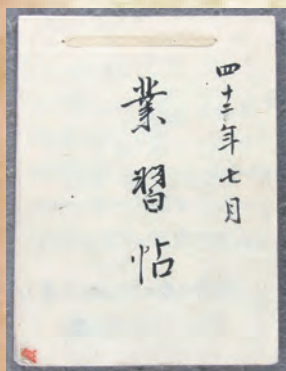 四十二年七月
業習帖